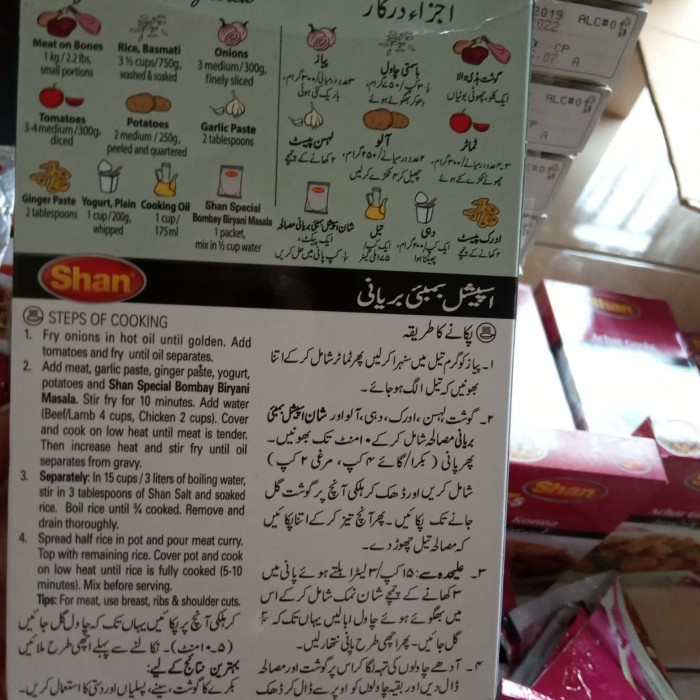 Meat on Bones
1 kg / 2.2 lbs,
small portions
Rice, Basmati
3 ½ cups/750g,
washed & soaked
Onions
3 medium/300g,
finely sliced
Tomatoes
3-4 medium/300g,
diced
Potatoes
2 medium / 250g,
peeled and quartered
Garlic Paste
2 tablespoons
Ginger Paste
2 tablespoons
Yogurt, Plain
1 cup/200g,
whipped
Cooking Oil
1 cup/
175ml
Shan Special
Bombay Biryani Masala
1 packet,
mix in ½ cup water
اجزاء درکار
پیاز
باسمتی چاول
گوشت ہڈی والا
ایک کلو، چھوٹی بوٹیاں
لہسن پیسٹ
آلو
ٹماٹر
شان اسپیشل بمبئی بریانی مصالحہ
تیل
دہی
ادرک پیسٹ
Shan
اسپیشل بمبئی بریانی
STEPS OF COOKING
1. Fry onions in hot oil until golden. Add
tomatoes and fry until oil separates.
2. Add meat, garlic paste, ginger paste, yogurt,
potatoes and Shan Special Bombay Biryani
Masala. Stir fry for 10 minutes. Add water
(Beef/Lamb 4 cups, Chicken 2 cups). Cover
and cook on low heat until meat is tender.
Then increase heat and stir fry until oil
separates from gravy.
3. Separately: In 15 cups / 3 liters of boiling water,
stir in 3 tablespoons of Shan Salt and soaked
rice. Boil rice until ¾ cooked. Remove and
drain thoroughly.
4. Spread half rice in pot and pour meat curry.
Top with remaining rice. Cover pot and cook
on low heat until rice is fully cooked (5-10
minutes). Mix before serving.
Tips: For meat, use breast, ribs & shoulder cuts.
پکانے کا طریقہ
۱۔ پیاز کو گرم تیل میں سنہرا کرلیں پھر ٹماٹر شامل کرکے اتنا
بھونیں کہ تیل الگ ہوجائے۔
۲۔ گوشت، لہسن، ادرک، دہی، آلو اور شان اسپیشل بمبئی
بریانی مصالحہ شامل کرکے ۱۰ منٹ تک بھونیں۔
پھر پانی (بکرا/گائے ۴ کپ، مرغی ۲ کپ)
شامل کریں اور ڈھک کر ہلکی آنچ پر گوشت گل
جانے تک پکائیں۔ پھر آنچ تیز کرکے اتنا پکائیں
کہ مصالحہ تیل چھوڑ دے۔
۳۔ علیحدہ سے: ۱۵ کپ/۳ لیٹر ابلتے ہوئے پانی میں
۳ کھانے کے چمچے شان نمک شامل کرکے اس
میں بھگوئے ہوئے چاول ابالیں یہاں تک کہ ¾
گل جائیں۔ پھر اچھی طرح پانی نتھار لیں۔
۴۔ آدھے چاولوں کی تہہ لگا کر اس پر گوشت اور مصالحہ
ڈال دیں اور بقیہ چاولوں کو اوپر سے ڈال کر ڈھک
کر ہلکی آنچ پر پکائیں یہاں تک کہ چاول گل جائیں
(۵-۱۰ منٹ)۔ نکالنے سے پہلے اچھی طرح ملائیں
بہترین نتائج کے لیے:
بکرے کا گوشت، سینے، پسلیاں اور دستی کا استعمال کریں۔
2019
ALC#0
022
CP
07
A
ALC#0
P
A
Shan
Shan
Korma